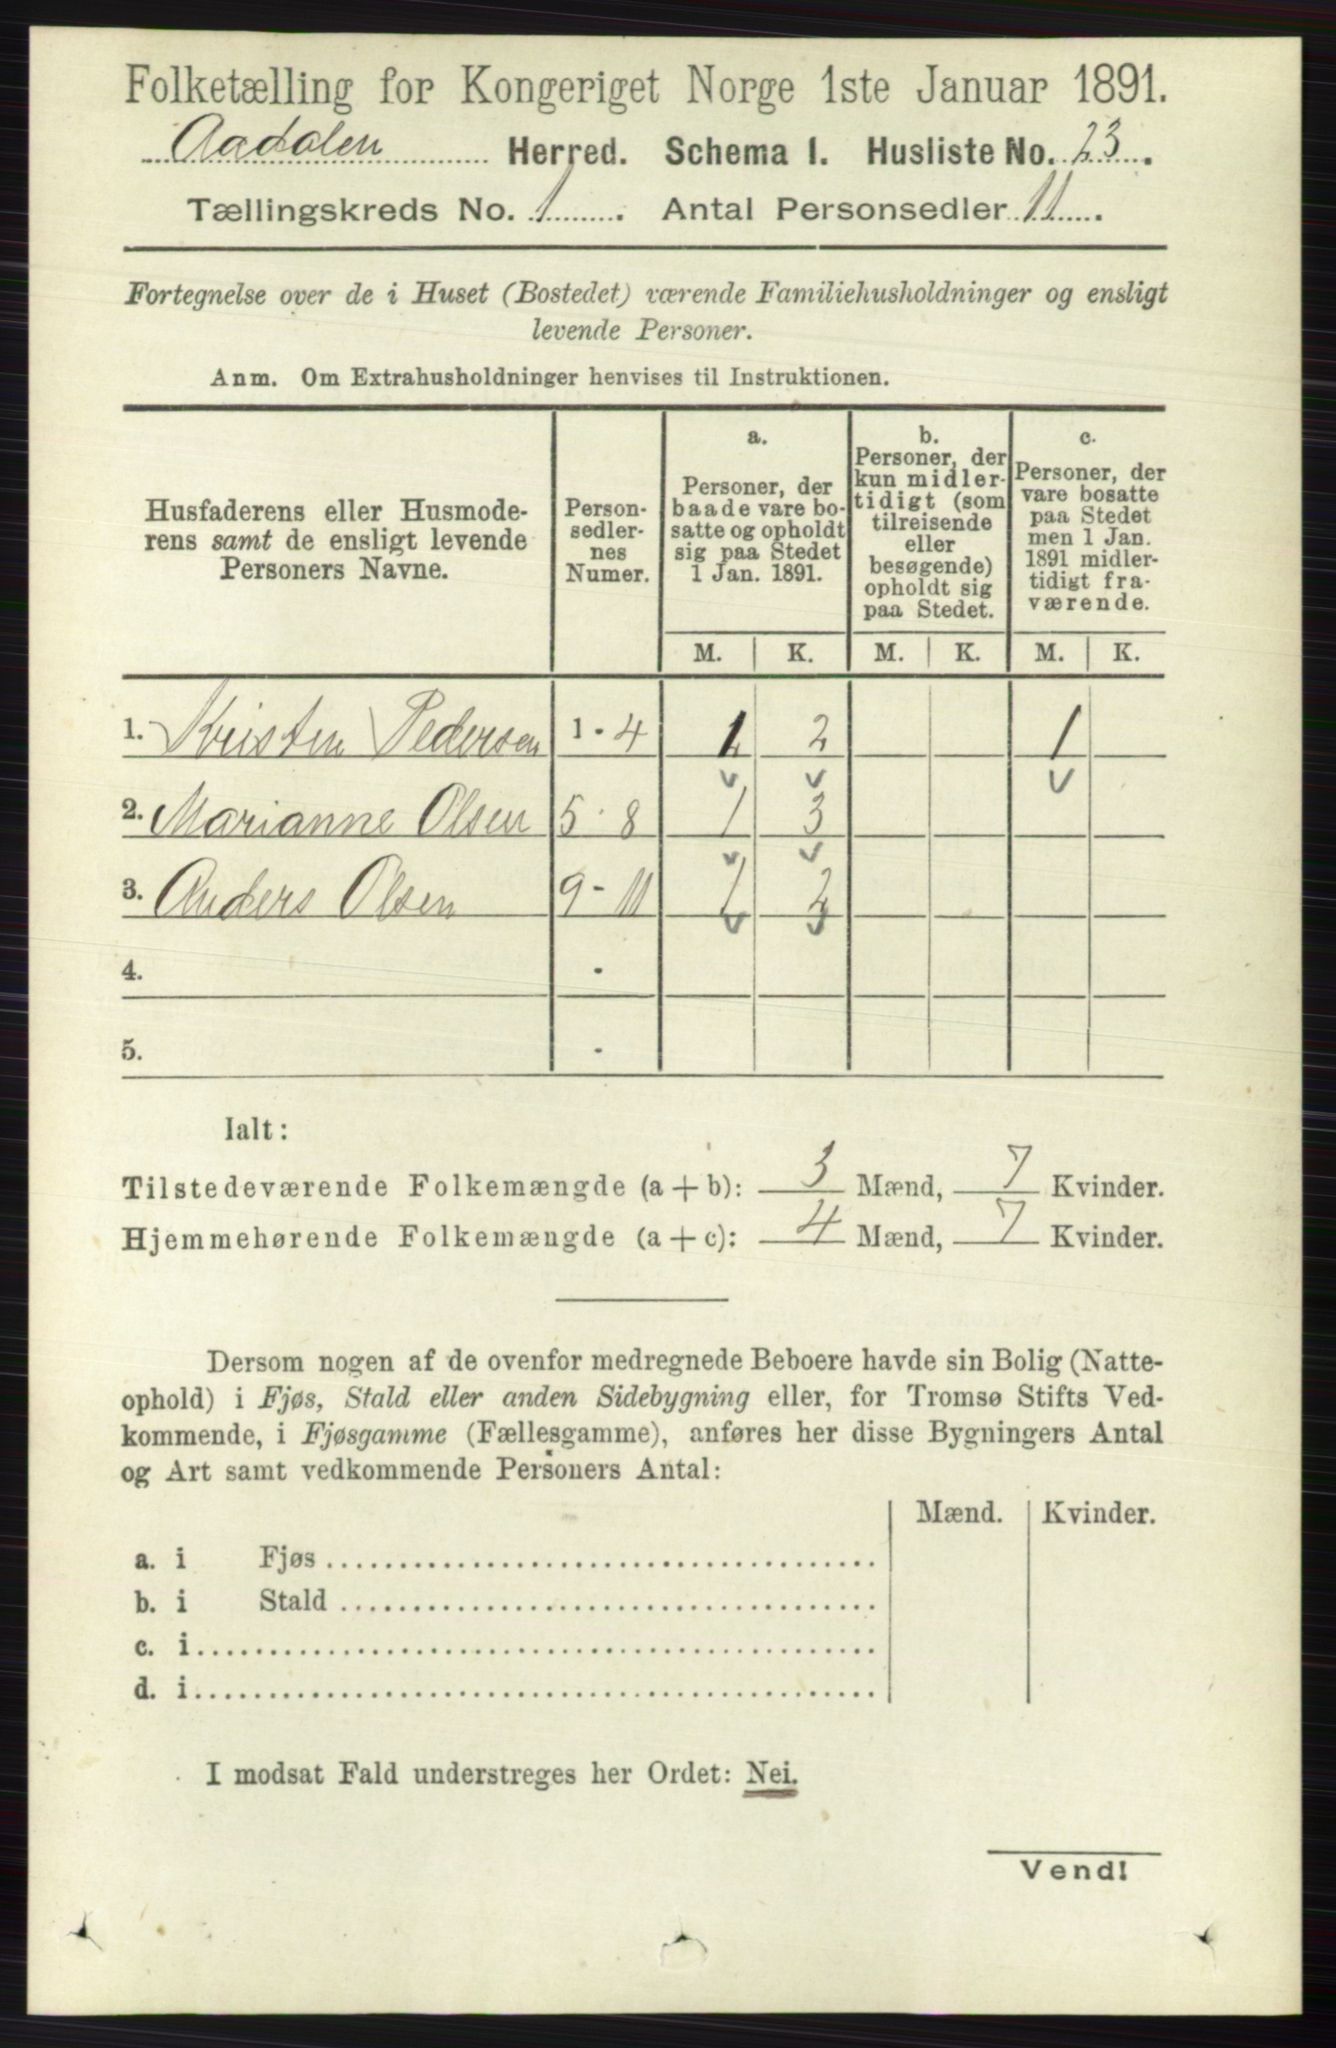 Folketælling for Kongeriget Norge 1ste Januar 1891.
Aadalen Herred. Schema I. Husliste No. 23.
Tællingskreds No. 1. Antal Personsedler 11.
Fortegnelse over de i Huset (Bostedet) værende Familiehusholdninger og ensligt
levende Personer.
Anm. Om Extrahusholdninger henvises til Instruktionen.
Husfaderens eller Husmode-
rens samt de ensligt levende
Personers Navne.
Person-
sedler-
nes
Numer.
a.
Personer, der
baade vare bo-
satte og opholdt
sig paa Stedet
1 Jan. 1891.
b.
Personer, der
kun midler-
tidigt (som
tilreisende
eller
besøgende)
opholdt sig
paa Stedet.
c.
Personer, der
vare bosatte
paa Stedet
men 1 Jan.
1891 midler-
tidigt fra-
værende.
M. K. M. K. M. K.
1. Kristen Pedersen 1 - 4 1 2 1
2. Marianne Olsen 5 - 8 1 3
3. Anders Olsen 9 - 11 1 2
4. -
5. -
Ialt:
Tilstedeværende Folkemængde (a + b): 3 Mænd, 7 Kvinder.
Hjemmehørende Folkemængde (a + c): 4 Mænd, 7 Kvinder.
Dersom nogen af de ovenfor medregnede Beboere havde sin Bolig (Natte-
ophold) i Fjøs, Stald eller anden Sidebygning eller, for Tromsø Stifts Ved-
kommende, i Fjøsgamme (Fællesgamme), anføres her disse Bygningers Antal
og Art samt vedkommende Personers Antal:
Mænd. Kvinder.
a. i Fjøs
b. i Stald
c. i
d. i
I modsat Fald understreges her Ordet: Nei.
Vend!